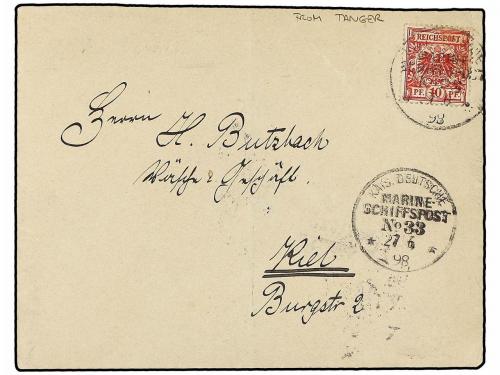 FROM TANGER
REICHSPOST
PF. 10 PF.
98
Herrn H. Butzbach
Wäsche-Geschäft.
KAIS. DEUTSCHE
MARINE-
SCHIFFSPOST
No 33
27 6
98
Kiel
Burgstr 2